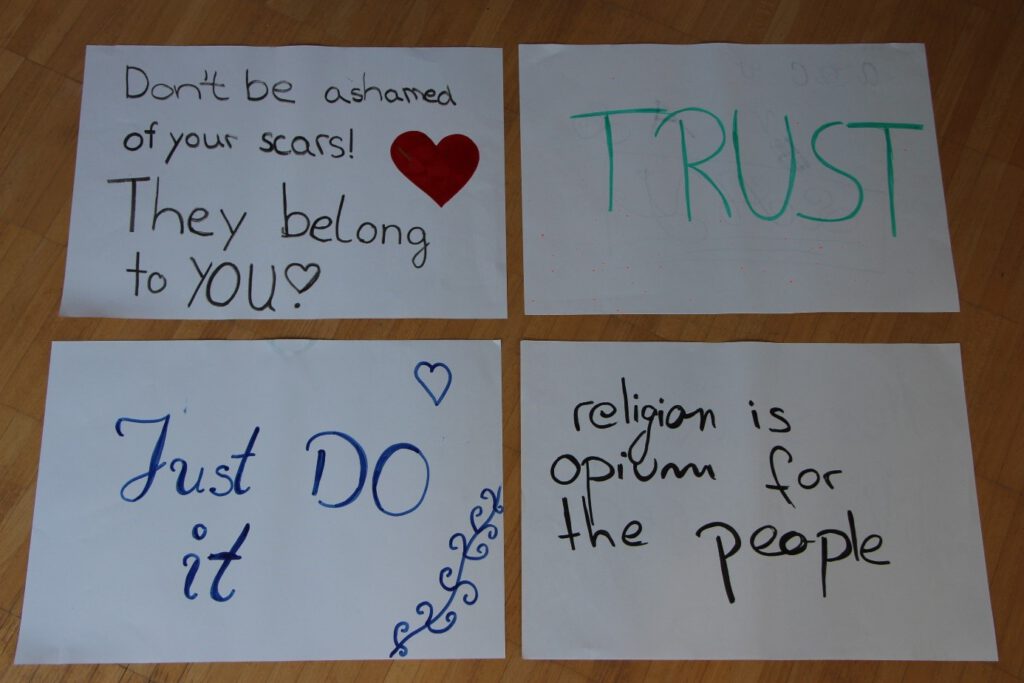 Don't be ashamed
of your scars!
They belong
to YOU
TRUST
Just DO
it
religion is
opium for
the people